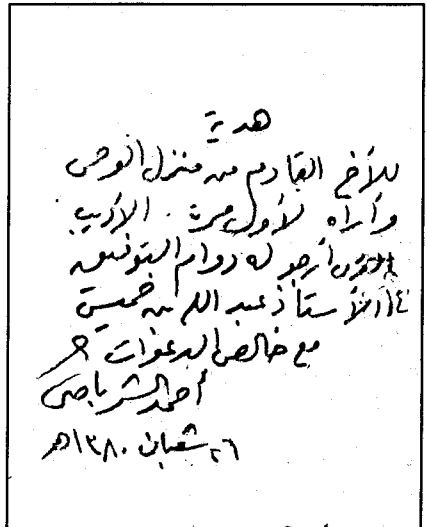 هدية
للأخ القادم من منزل الوحى
وأراه لأول مرة. الأديب
أرجو له دوام التوفيق
الأستاذ عبد الله بن خميس
مع خالص الدعوات
أحمد الشرباصى
٢٦ شعبان ١٣٨٠هـ